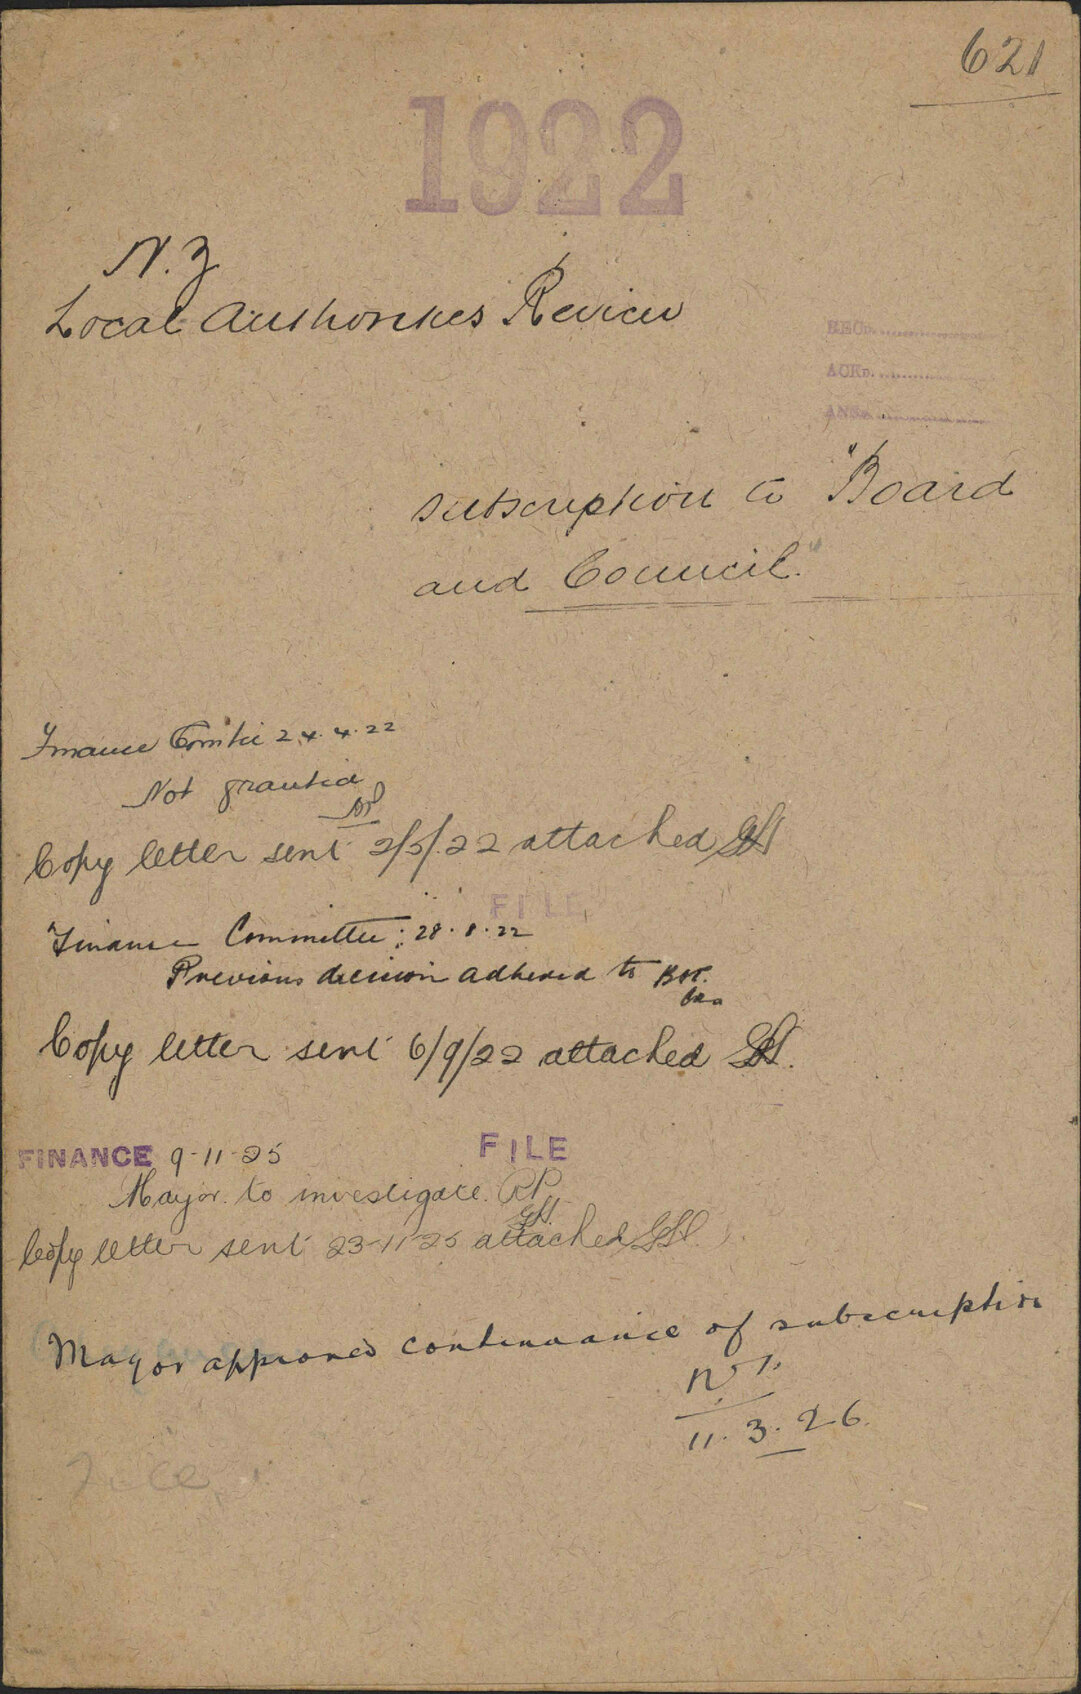 621
1922
N.Z
Local Authorities Review
REC
ACKD.
ANS
subscription to "Board
and Council."
Finance Comtee 24.4.22
Not granted
Copy letter sent 2/5/22 attached
FILE
Finance Committee: 28.8.22
Previous decision adhered to
Copy letter sent 6/9/22 attached
FINANCE 9-11-25
FILE
Mayor to investigate. RP
Copy letter sent 23-11-25 attached
Mayor approved continuance of subscription
11.3.26.
File